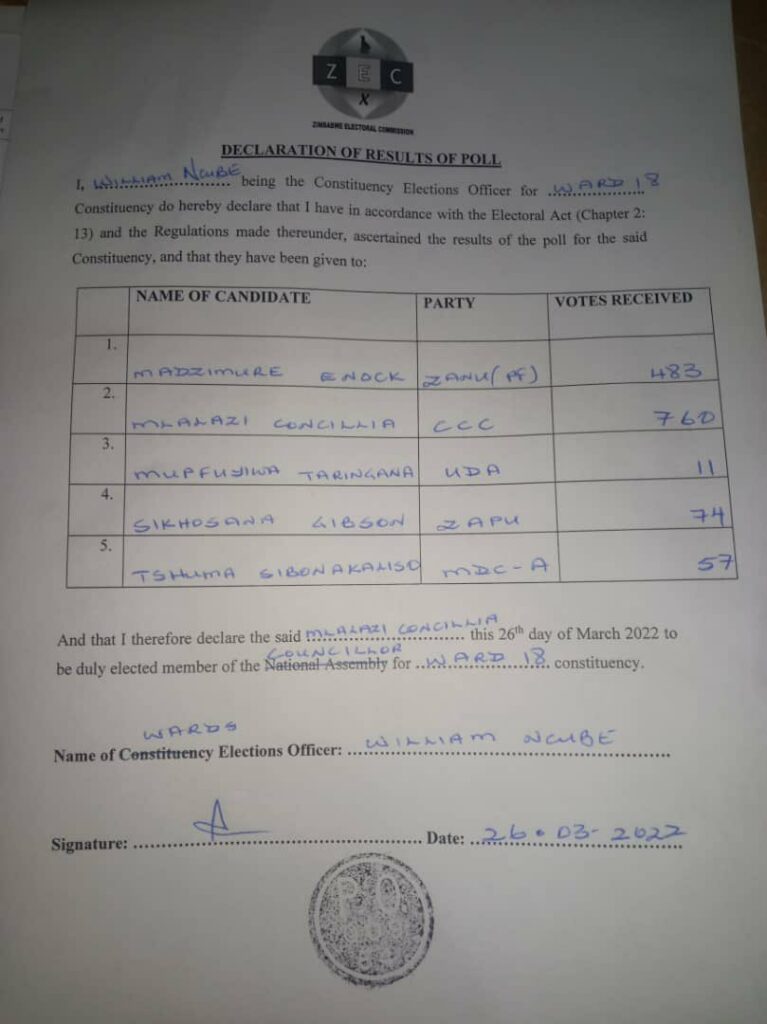 Z E C
X
ZIMBABWE ELECTORAL COMMISSION
DECLARATION OF RESULTS OF POLL
I, WILLIAM NCUBE being the Constituency Elections Officer for WARD 18
Constituency do hereby declare that I have in accordance with the Electoral Act (Chapter 2:
13) and the Regulations made thereunder, ascertained the results of the poll for the said
Constituency, and that they have been given to:
NAME OF CANDIDATE PARTY VOTES RECEIVED
1. MADZIMURE ENOCK ZANU(PF) 483
2. MLALAZI CONCILLIA CCC 760
3. MUPFUYIWA TARINGANA UDA 11
4. SIKHOSANA GIBSON ZAPU 74
5. TSHUMA SIBONAKALISO MDC-A 57
And that I therefore declare the said MLALAZI CONCILLIA this 26th day of March 2022 to
COUNCILLOR
be duly elected member of the National Assembly for WARD 18 constituency.
WARDS
Name of Constituency Elections Officer: WILLIAM NCUBE
Signature: Date: 26.03-2022
P.O